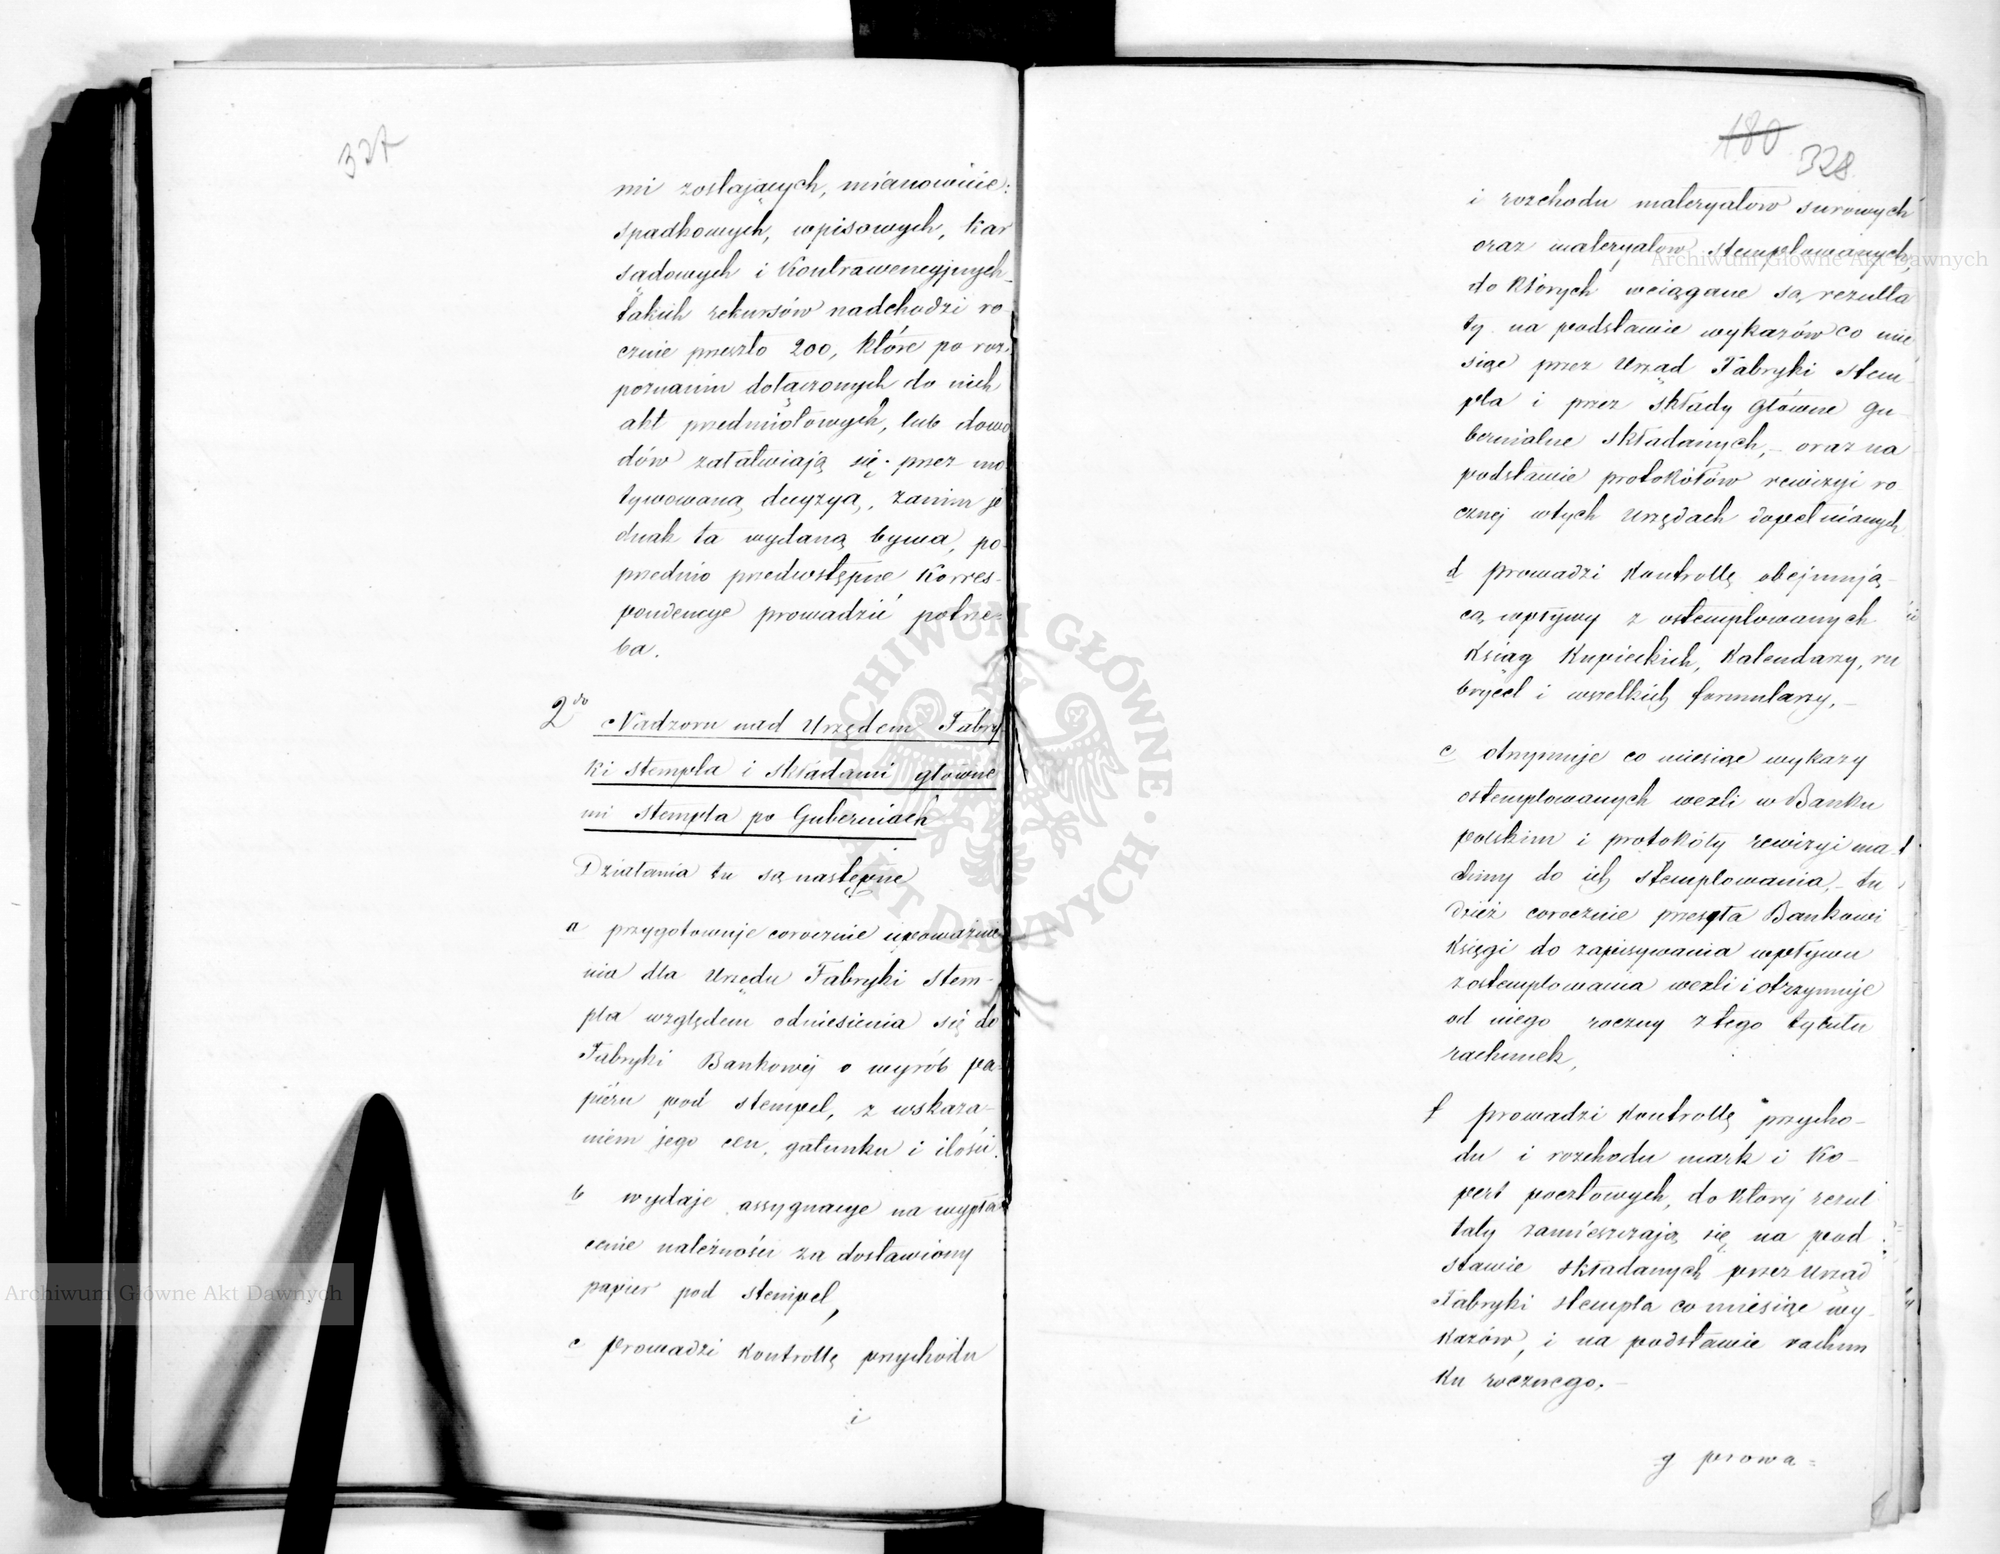 327
mi zostających, mianowicie:
spadkowych, wpisowych, kar
sądowych i kontrawencyjnych
takich rekursów nadchodzi ro-
cznie przeszło 200, które po roz-
poznaniu dołączonych do nich
akt przedmiotowych, lub dowo
dów załatwiają się przez mo-
tywowaną decyzyą, zanim je
dnak ta wydaną bywa, po-
przednio przedwstępne korres-
pondencye prowadzić potrze-
ba.
2do Nadzoru nad Urzędem Fabry-
ki stempla i składami główne
mi stempla po Guberniach
Działania tu są następne
a przygotowuje corocznie upoważnie
nia dla Urzędu Fabryki stem-
pla względem odniesienia się do
Fabryki Bankowej o wyrób pa-
pieru pod stempel, z wskaza-
niem jego cen, gatunku i ilości.
b wydaje assygnacye na wypła-
cenie należności za dostawiony
papier pod stempel,
c prowadzi kontrollę przychodu
i
180
328
i rozchodu materyałów surowych
oraz materyałów stemplowanych,
do których wciągane są rezulta
ty na podstawie wykazów co mie
siąc przez Urząd Fabryki stem-
pla i przez składy Główne gu-
bernialne składanych, - oraz na
podstawie protokółów rewizyi ro-
cznej wtych Urzędach dopełnianych
d prowadzi kontrollę obejmują-
cą wpływy z ostemplowanych
ksiąg kupieckich, kalendarzy, ru
brycel i wszelkich formularzy, -
e otrzymuje co miesiąc wykazy
ostemplowanych wexli w Banku
polskim i protokóły rewizyi ma-
chiny do ich stemplowania, - tu
dzież corocznie przesyła Bankowi
księgi do zapisywania wpływu
z ostemplowania wexli i otrzymuje
od niego roczny z tego tytułu
rachunek,
f prowadzi kontrollę przycho-
du i rozchodu mark i ko-
pert pocztowych, do której rezul
taty zamieszczają się na pod
stawie składanych przez Urząd
Fabryki stempla co miesiąc wy-
kazów, i na podstawie rachun
ku rocznego. -
g prowa=
Archiwum Główne Akt Dawnych
Archiwum Główne Akt Dawnych
ARCHIWUM GŁÓWNE AKT DAWNYCH